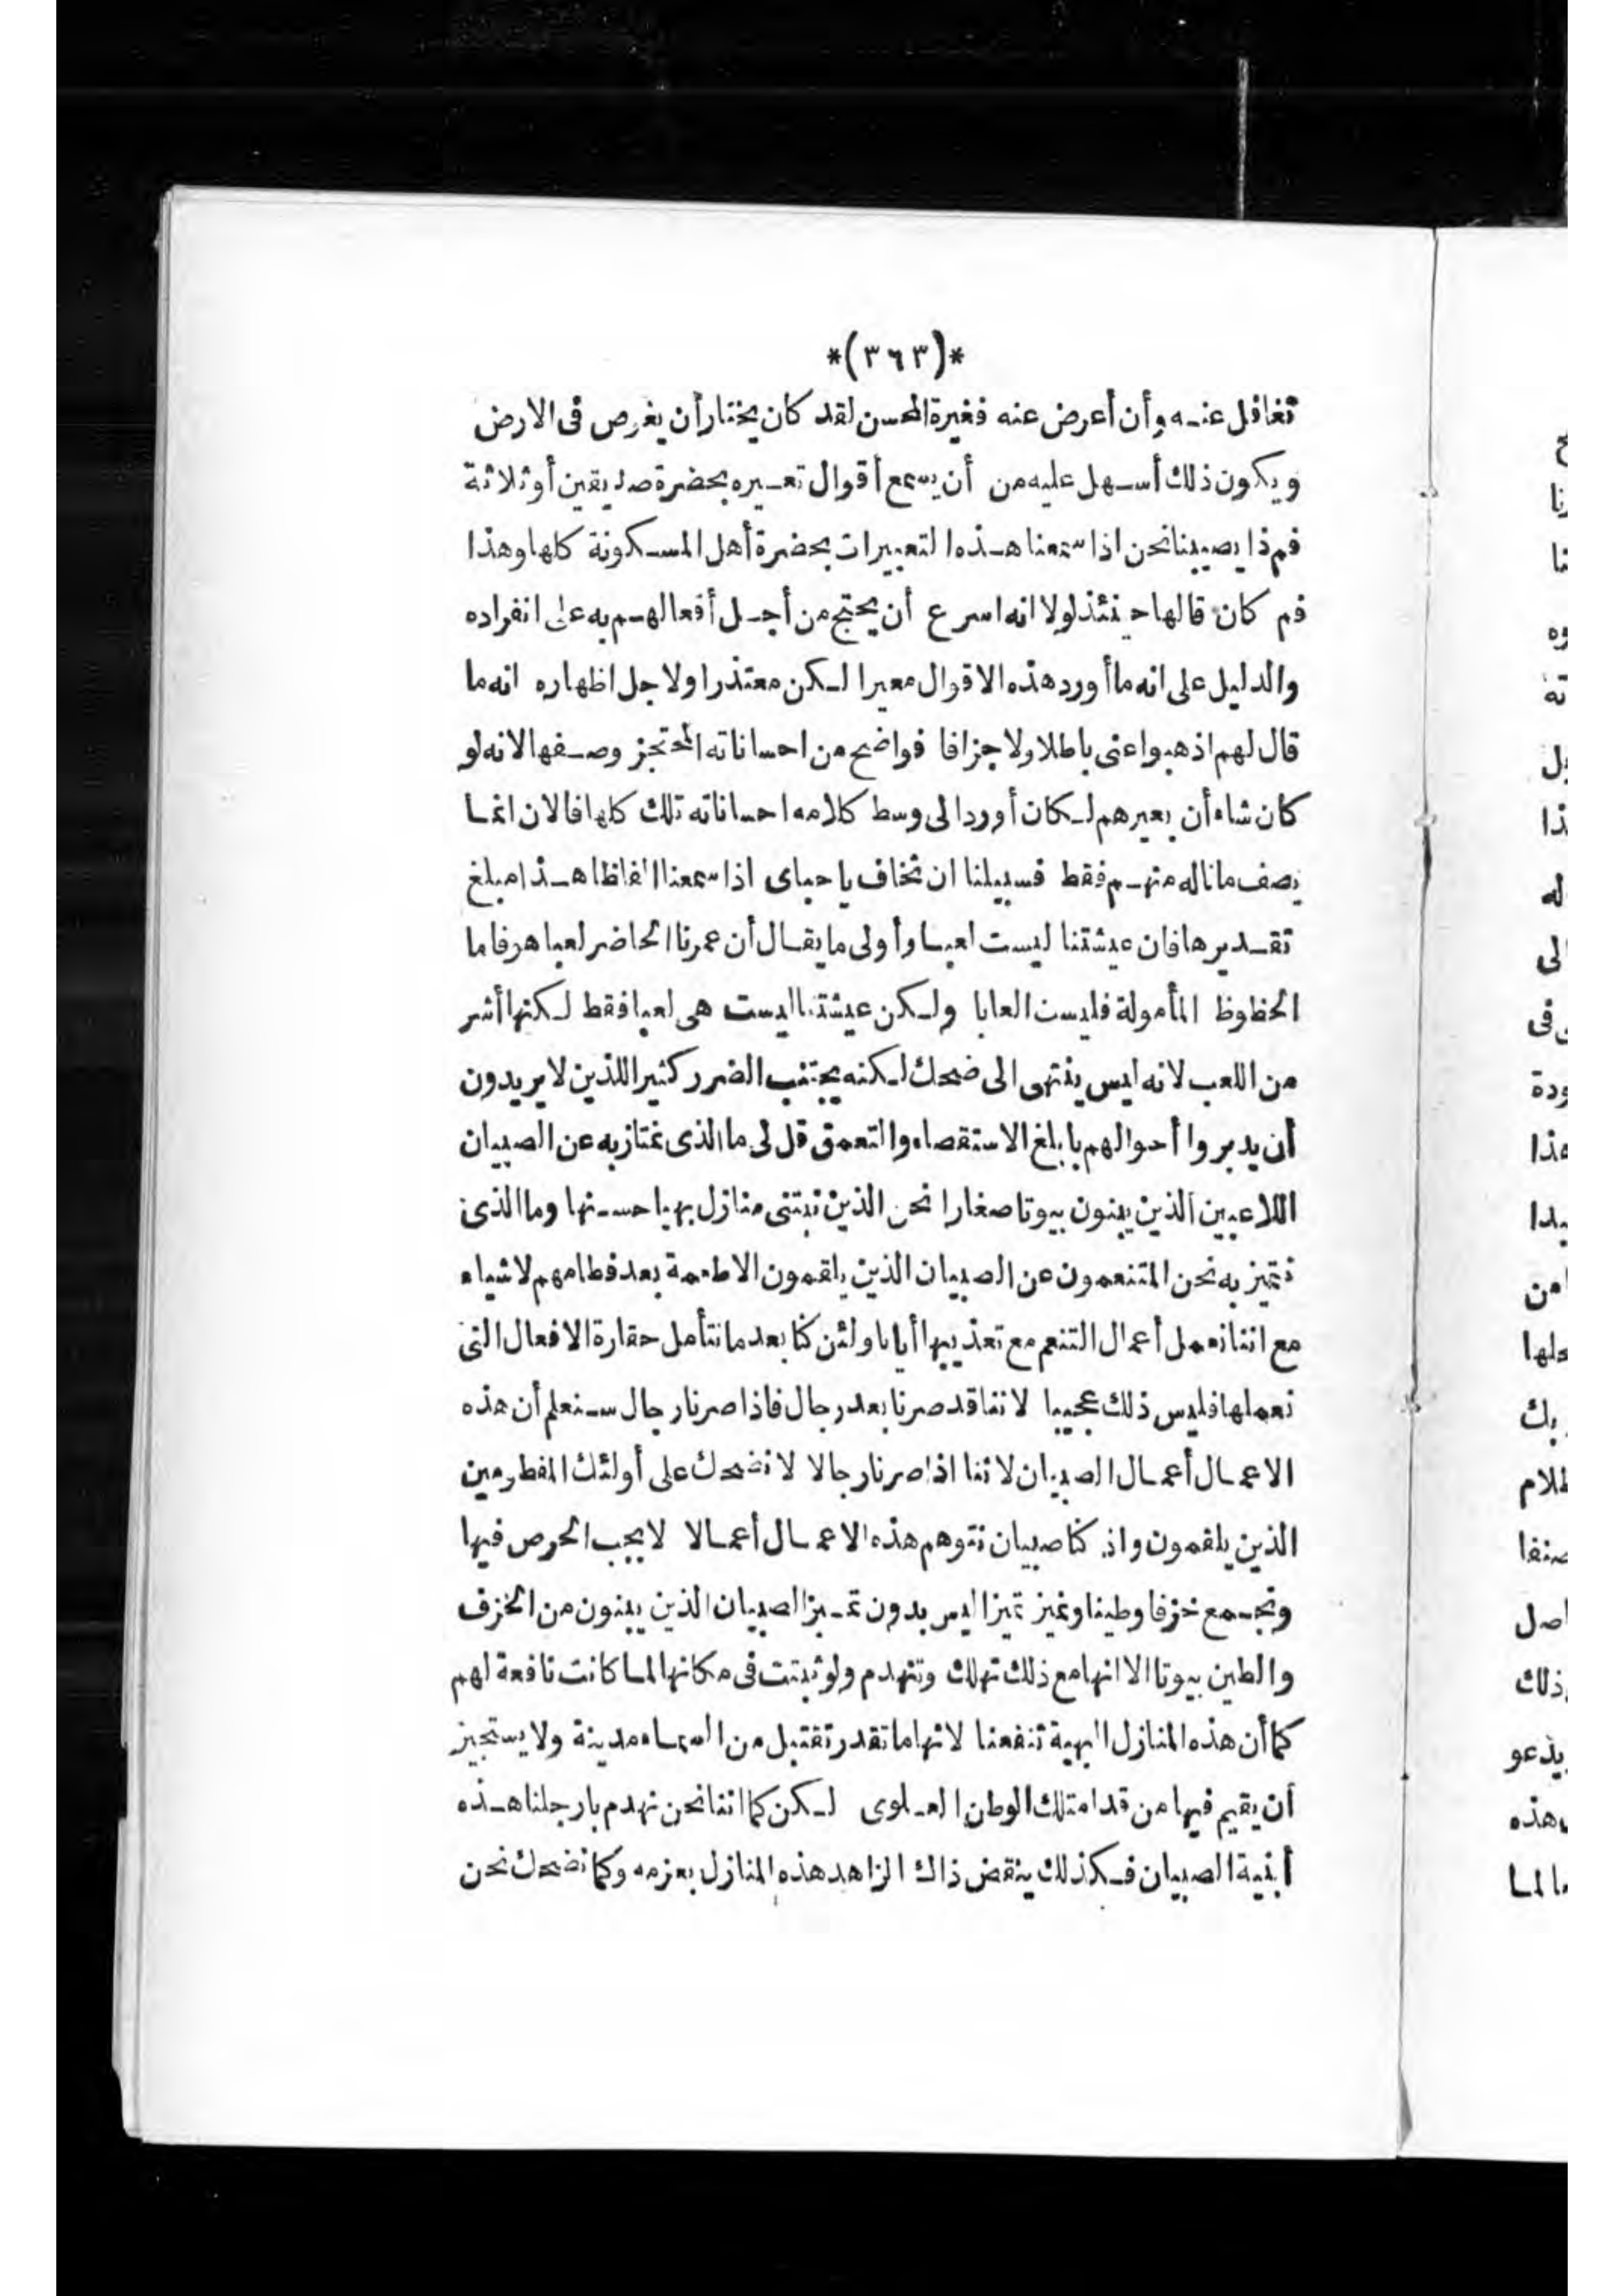 *(٣٦٣)*
تغافل عنه وأن أعرض عنه فغيرة المحسن لقد كان يختار أن يغرص فى الارض
ويكون ذلك أسهل عليه من أن يسمع أقوال تعييره بحضرة صديقين أو ثلاثة
فم ذا يصيبنا نحن اذا سمعنا هذه التعييرات بحضرة أهل المسكونة كلها وهذا
فم كان قالها حينئذ لولا انه اسرع أن يحتج من أجل أفعالهم به على انفراده
والدليل على انه ما أورد هذه الاقوال معيرا لكن معتذرا ولاجل اظهاره انه ما
قال لهم اذهبوا عنى باطلا ولا جزافا فواضح من احساناته المحتجز وصفها لانه لو
كان شاء أن يعيرهم لكان أورد الى وسط كلامه احساناته تلك كلها فالان انما
يصف ما ناله منهم فقط فسبيلنا ان نخاف يا حباى اذا سمعنا الفاظا هذا مبلغ
تقديرها فان عيشتنا ليست لعبا وأولى ما يقال أن عمرنا الحاضر لعبا هو فاما
الحظوظ المأمولة فليست العابا ولكن عيشتنا ليست هى لعبا فقط لكنها أشر
من اللعب لانه ليس ينتهى الى ضحك لكنه يجتنب الضرر كثيرا للذين لا يريدون
أن يدبروا أحوالهم بابلغ الاستقصاء والتعمق قل لى ما الذى نمتاز به عن الصبيان
اللاعبين الذين يبنون بيوتا صغارا نحن الذين نبتنى منازل بهيا حسنها وما الذى
نتميز به نحن المتنعمون عن الصبيان الذين يلقمون الاطعمة بعد فطامهم لا شياء
مع اننا نعمل أعمال التنعم مع تعذيبها أيانا ولئن كنا بعد ما نتأمل حقارة الافعال التى
نعملها فليس ذلك عجيبا لاننا قد صرنا بعد رجال فاذا صرنا رجال سنعلم أن هذه
الاعمال أعمال الصبيان لاننا اذا صرنا رجالا لا نضحك على أولئك المفطومين
الذين يلقمون واذ كنا صبيان نتوهم هذه الاعمال أعمالا لا يجب الحرص فيها
ونجمع خزفا وطينا ونميز تميزا ليس بدون تميز الصبيان الذين يبنون من الخزف
والطين بيوتا الا انها مع ذلك تهلك وتنهدم ولو ثبتت فى مكانها لما كانت نافعة لهم
كما أن هذه المنازل البهية تنفعنا لانها ما تقدر تقتبل من السماء مدينة ولا يستجيز
أن يقيم فيها من قد امتلك الوطن العلوى لكن كما اننا نحن نهدم بارجلنا هذه
أبنية الصبيان فكذلك ينقض ذاك الزاهد هذه المنازل بعزمه وكما نضحك نحن